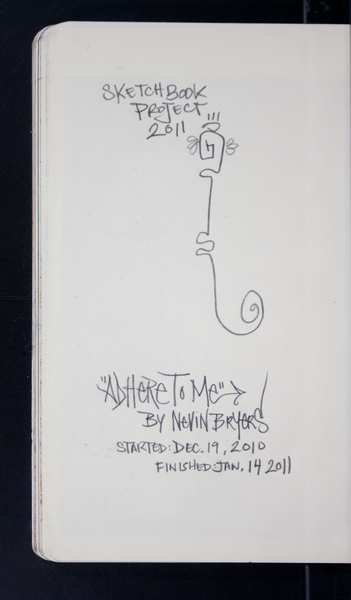 SKETCHBOOK
PROJECT
2011
"ADHERE TO ME"
BY NEVIN BRYERS
STARTED: DEC. 19, 2010
FINISHED: JAN. 14 2011